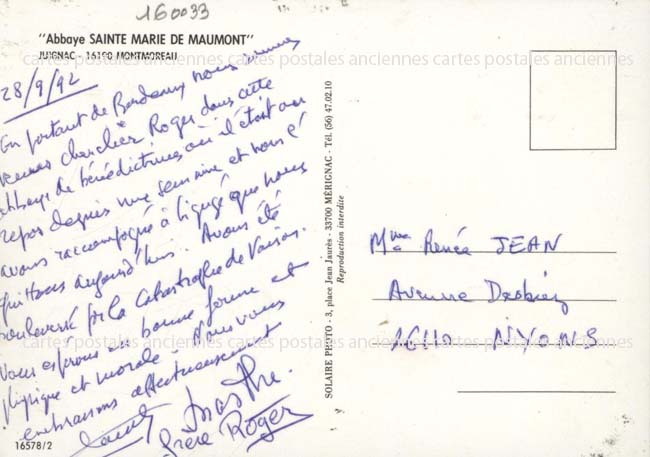 160033
"Abbaye SAINTE MARIE DE MAUMONT"
JUIGNAC - 16190 MONTMOREAU
28/9/92
En partant de Bordeaux nous sommes
venus chercher Roger dans cette
abbaye de bénédictines où il était au
repos depuis une semaine et nous l'
avons raccompagné à Ligugé que nous
quittons aujourd'hui. Avons été
bouleversé par la catastrophe de Vaison.
Vous espérons en bonne forme et
physique et morale. Nous vous
embrassons affectueusement
Marthe.
frère Roger
16578/2
SOLAIRE PHOTO - 3, place Jean Jaurès - 33700 MÉRIGNAC - Tél. (56) 47.02.10
Reproduction interdite
Mme Renée JEAN
Avenue
NYONS
cartes postales anciennes cartes postales anciennes cartes postales anciennes
cartes postales anciennes cartes postales anciennes cartes postales anciennes